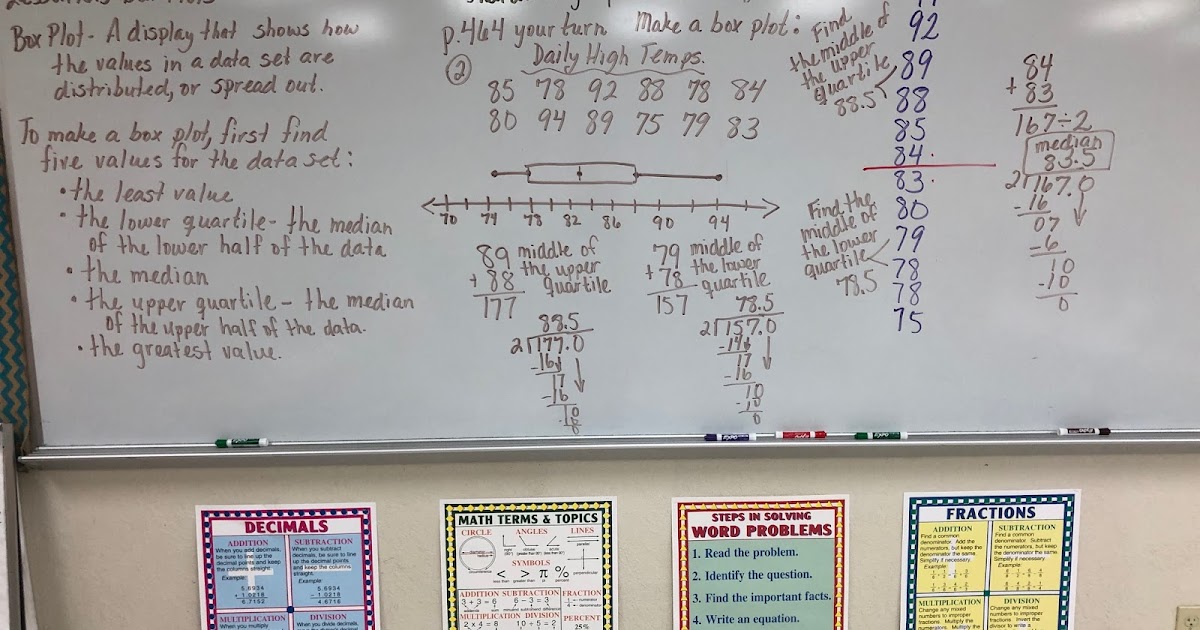 Box Plot - A display that shows how
the values in a data set are
distributed, or spread out.
To make a box plot, first find
five values for the data set:
• the least value
• the lower quartile - the median
of the lower half of the data
• the median
• the upper quartile - the median
of the upper half of the data.
• the greatest value.
p.464 your turn Make a box plot:
② Daily High Temps.
85 78 92 88 78 84
80 94 89 75 79 83
70 74 78 82 86 90 94
89
+ 88
177
middle of
the upper
quartile
88.5
2 177.0
-16
17
-16
10
-10
0
79
+ 78
157
middle of
the lower
quartile
78.5
2 157.0
-14
17
-16
10
-10
0
Find
the middle of
the upper
quartile
88.5
92
89
88
85
84
83
80
79
78
78
75
Find the
middle of
the lower
quartile
78.5
84
+ 83
167÷2
median
83.5
2 167.0
-16
07
-6
10
-10
0
EXPO
DECIMALS
ADDITION
When you add decimals,
be sure to line up the
decimal points and keep
the columns straight.
Example:
5.6934
+ 1.0218
6.7152
SUBTRACTION
When you subtract
decimals, be sure to line
up the decimal points
and keep the columns
straight.
Example:
5.6934
- 1.0218
4.6716
MULTIPLICATION
When you multiply
DIVISION
When you divide decimals,
MATH TERMS & TOPICS
CIRCLE ANGLES LINES
SYMBOLS
< > π %
ADDITION SUBTRACTION FRACTION
3 + 3 = 6 6 - 3 = 3
MULTIPLICATION DIVISION PERCENT
2 x 4 = 8 10 ÷ 5 = 2 25%
STEPS IN SOLVING
WORD PROBLEMS
1. Read the problem.
2. Identify the question.
3. Find the important facts.
4. Write an equation.
FRACTIONS
ADDITION
Find a common
denominator. Add the
numerators, but keep the
denominator the same.
Simplify if necessary.
Example:
SUBTRACTION
Find a common
denominator. Subtract
the numerators, but keep
the denominator the same.
Simplify if necessary.
Example:
MULTIPLICATION
Change any mixed
numbers to improper
fractions. Multiply the
DIVISION
Change any mixed
numbers to improper
fractions. Invert the